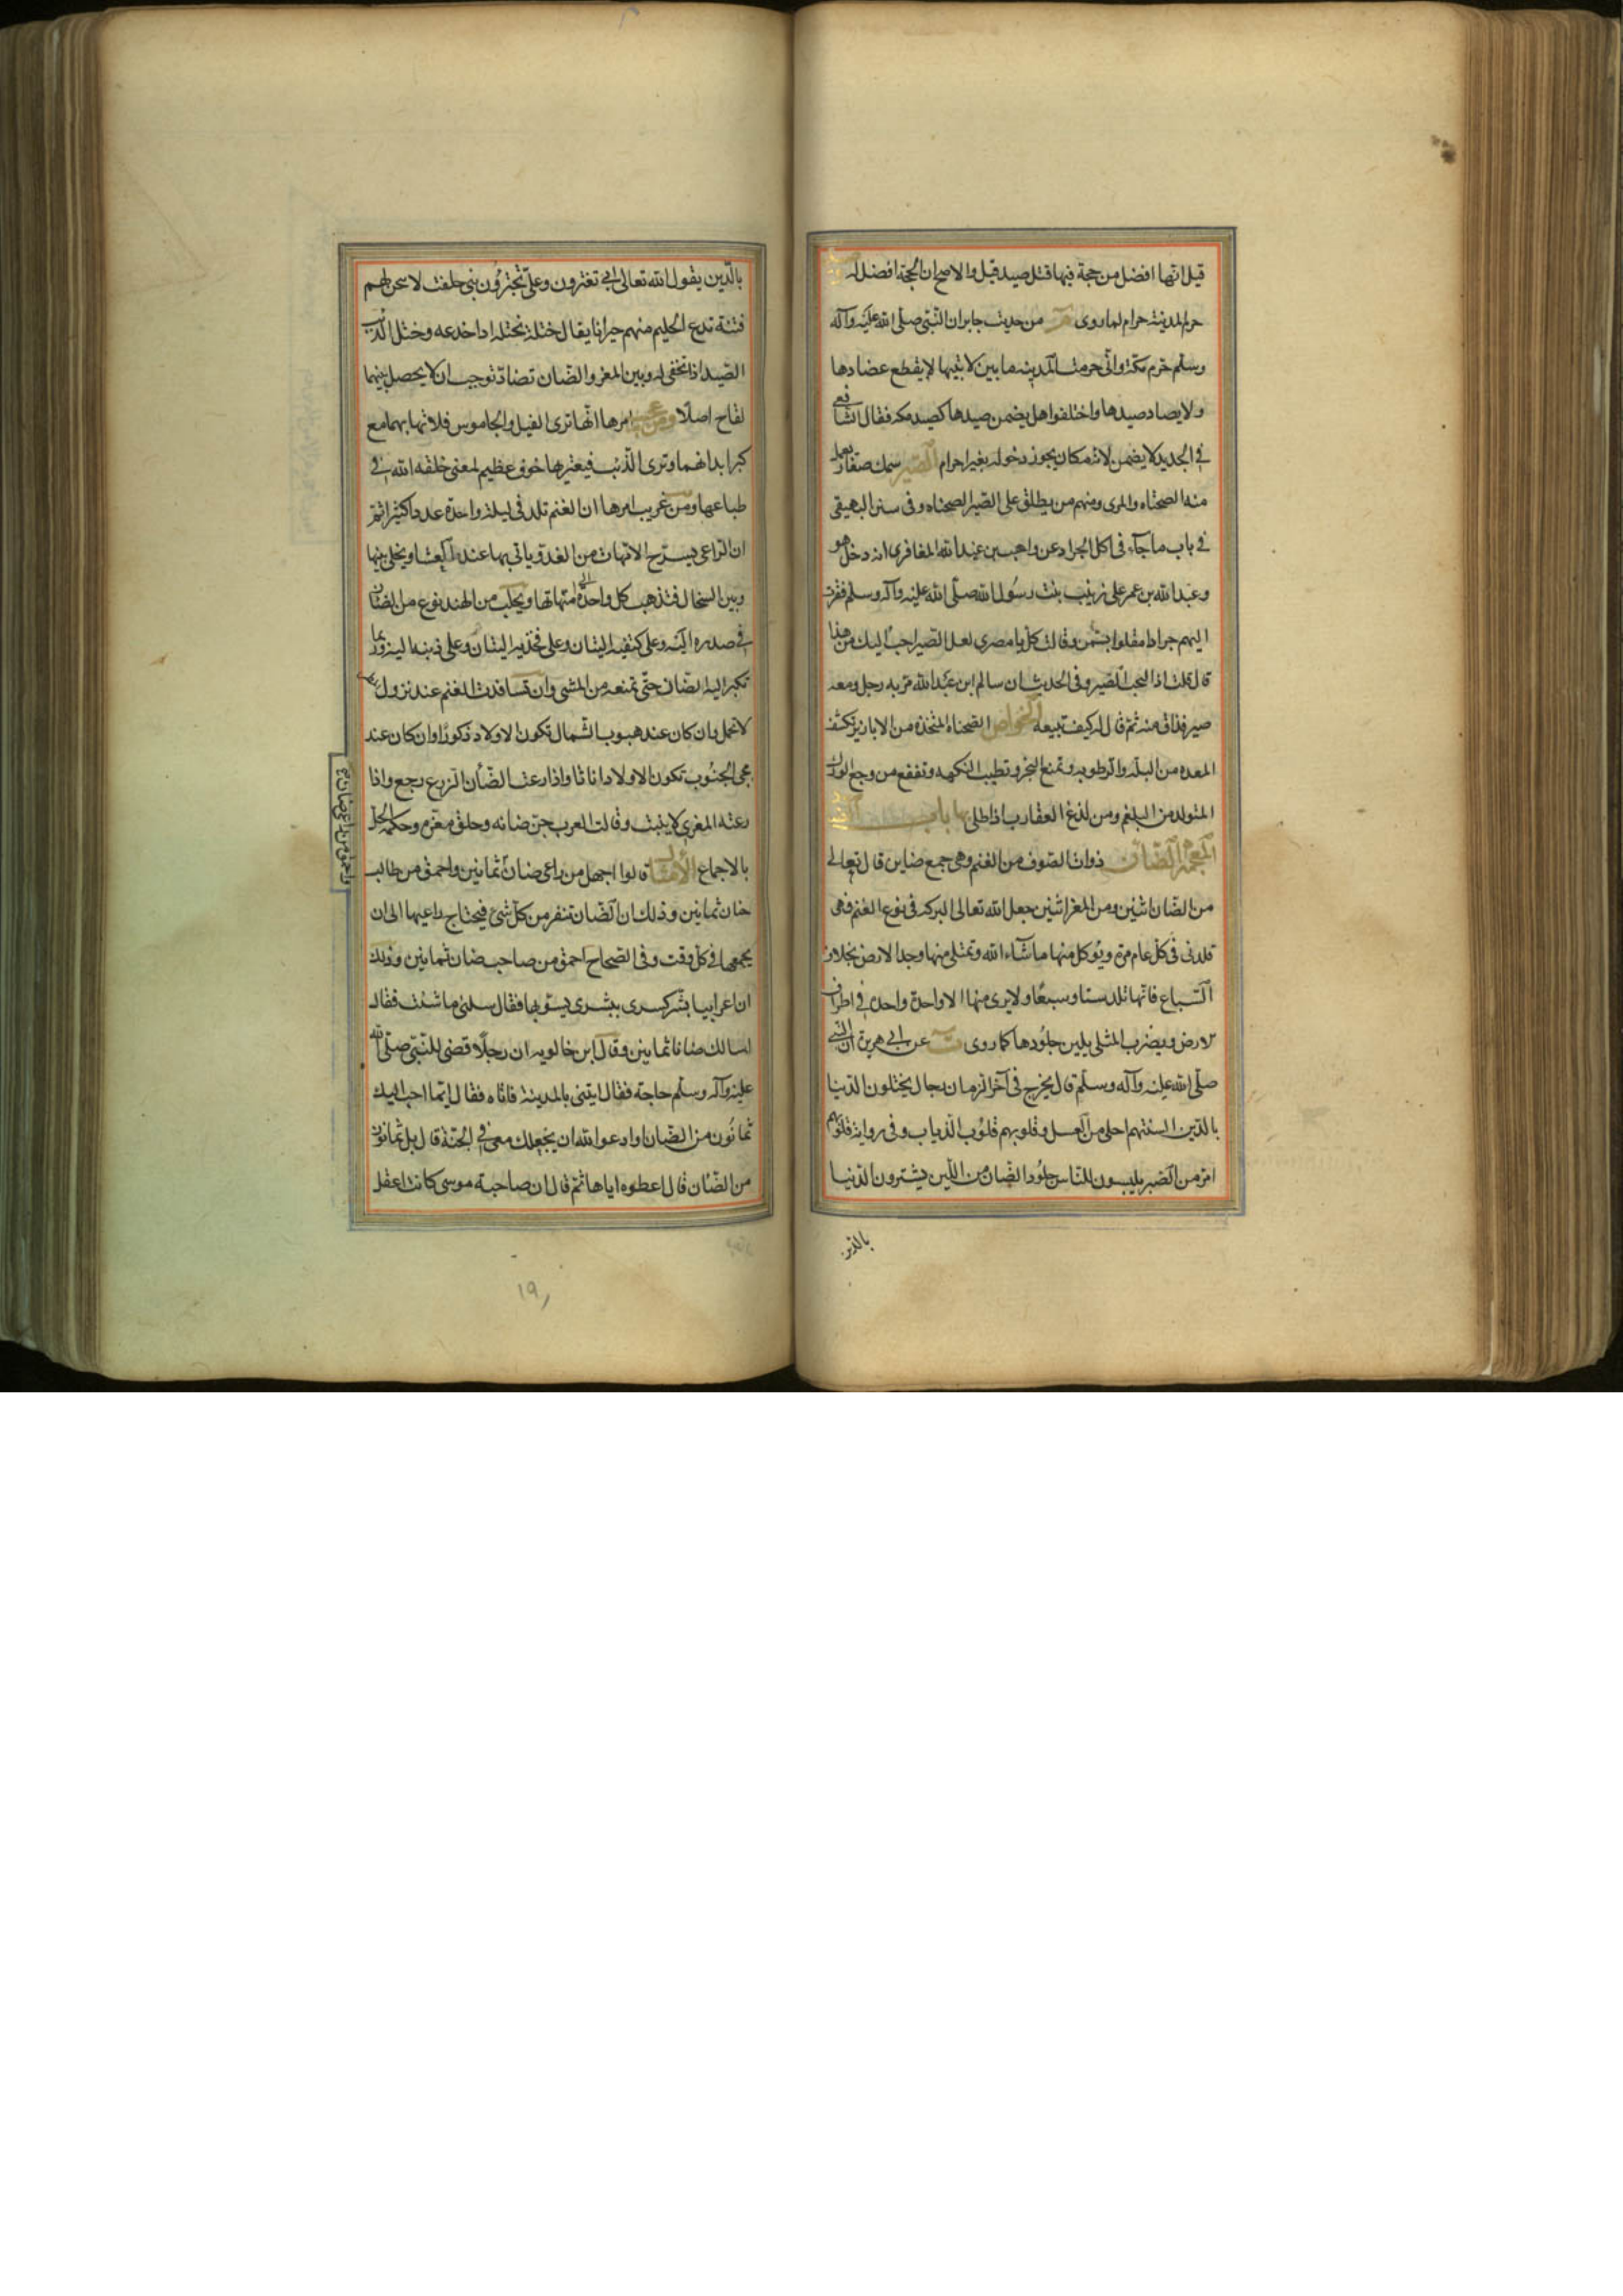 قيل انها افضل من حجة فيها قتل صيد قبل والاصح ان الحجة افضل
حرم المدينة حرام لما روى من حديث جابر ان النبى صلى الله عليه وآله
وسلم حرم مكة وانى حرمت المدينة ما بين لابتيها لا يقطع عضادها
ولا يصاد صيدها واختلفوا هل يضمن صيدها كصيد مكه فقال الشافعى
فى الجديد لا يضمن لانه مكان يجوز دخوله بغير احرام الصير سمك صغار يعمل
منه الصحناه والمرى ومنهم من يطلق على الصير الصحناه وفى سنن البيهقى
فى باب ما جآء فى اكل الجراد عن واهب بن عبد الله المغافرى انه دخل هو
وعبد الله بن عمر على زينب بنت رسول الله صلى الله عليه وآله وسلم فقربت
اليهم جرادا مقلوا بسمن وقالت كل يا مصرى لعل الصير احب اليك من هذا
قال قلت انا لنحب الصير وفى الحديث ان سالم ابن عبد الله مر به رجل ومعه
صير فذاق منه ثم قال له كيف تبيعه الخواص الصحناه المتخذه من الابازير تنشف
المعده من البله والرطوبه وتمنع البخر وتطيب النكهه وتنفع من وجع الورك
المتولد من البلغم ومن لدغ العقارب اذا طلى بها باب
المعجمة الضان ذوات الصوف من الغنم وهى جمع ضاين قال تعالى
من الضان اثنين ومن المعز اثنين جعل الله تعالى البركه فى نوع الغنم فهى
تلد فى كل عام مرة ويؤكل منها ما شآء الله وتمتلى منها وجه الارض بخلاف
السباع فانها تلد ستا وسبعا ولا يرى منها الا واحدة واحدة فى اطراف
الارض ويضرب المثل بلين جلودها كما روى ت عن ابى هريرة ان النبى
صلى الله عليه وآله وسلم قال يخرج فى آخر الزمان رجال يختلون الدنيا
بالدين السنتهم احلى من العسل وقلوبهم قلوب الذياب وفى رواية قلوبهم
امر من الصبر يلبسون للناس جلود الضان من اللين يشترون الدنيا
بالدين
بالدين يقول الله تعالى ابى تغترون وعلى تجترؤن بى حلفت لاتيحن لهم
فتنة تدع الحليم منهم حيرانا يقال ختله يختله اذا خدعه وختل الذئب
الصيد اذا تخفى له وبين المعز والضان تضاد توجب ان لا يحصل بينهما
لقاح اصلا ومن عجيب امرها انها ترى الفيل والجاموس فلا تهابهما مع
كبر ابدانهما وترى الذئب فيعتريها خوف عظيم لمعنى خلقه الله فى
طباعها ومن غريب امرها ان الغنم تلد فى ليلة واحدة عددا كثيرا ثم
ان الراعى يسرح الامهات من الغد وياتى بها عند العشا ويخلى بينها
وبين السخال فتذهب كل واحدة الى امهاتها ويجلب من الهند نوع من الضان
فى صدره الية وعلى كتفيه اليتان وعلى فخذيه اليتان وعلى ذنبه الية وربما
تكبر الية الضان حتى تمنعه من المشى وان تسافدت الغنم عند نزول
لا تحمل وان كان عند هبوب الشمال تكون الاولاد ذكورا وان كان عند
مجى الجنوب تكون الاولاد اناثا واذا رعت الضأن الزرع رجع واذا
رعته المعزى لا ينبت وقالت العرب جز ضانه وحلق معز وحكمه الحل
بالاجماع الامثال قالوا اجهل من راعى ضان ثمانين واحمق من طالب
ضان ثمانين وذلك ان الضان تنفر من كل شئ فيحتاج راعيها الى ان
يجمعها فى كل وقت وفى الصحاح احمق من صاحب ضان ثمانين وذلك
ان اعرابيا بشر كسرى ببشرى يسر بها فقال سلنى ما شئت فقال
اسالك ضانا ثمانين وقال ابن خالويه ان رجلا قضى للنبى صلى الله
عليه وآله وسلم حاجة فقال ايتنى بالمدينة فاتاه فقال ايما احب اليك
ثمانون من الضان او ادعو الله ان يجعلك معى فى الجنة قال بل ثمانون
من الضان قال اعطوه اياها ثم قال ان صاحبة موسى كانت اعقل
واحمق من راعى ضان
١٩١